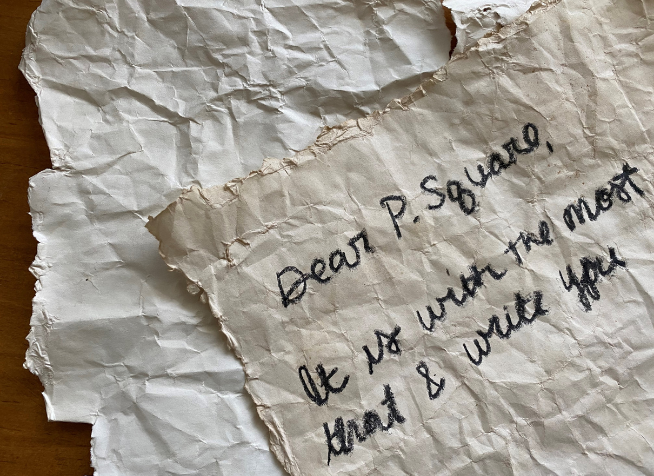 Dear P. Square,
It is with the most
that & write you